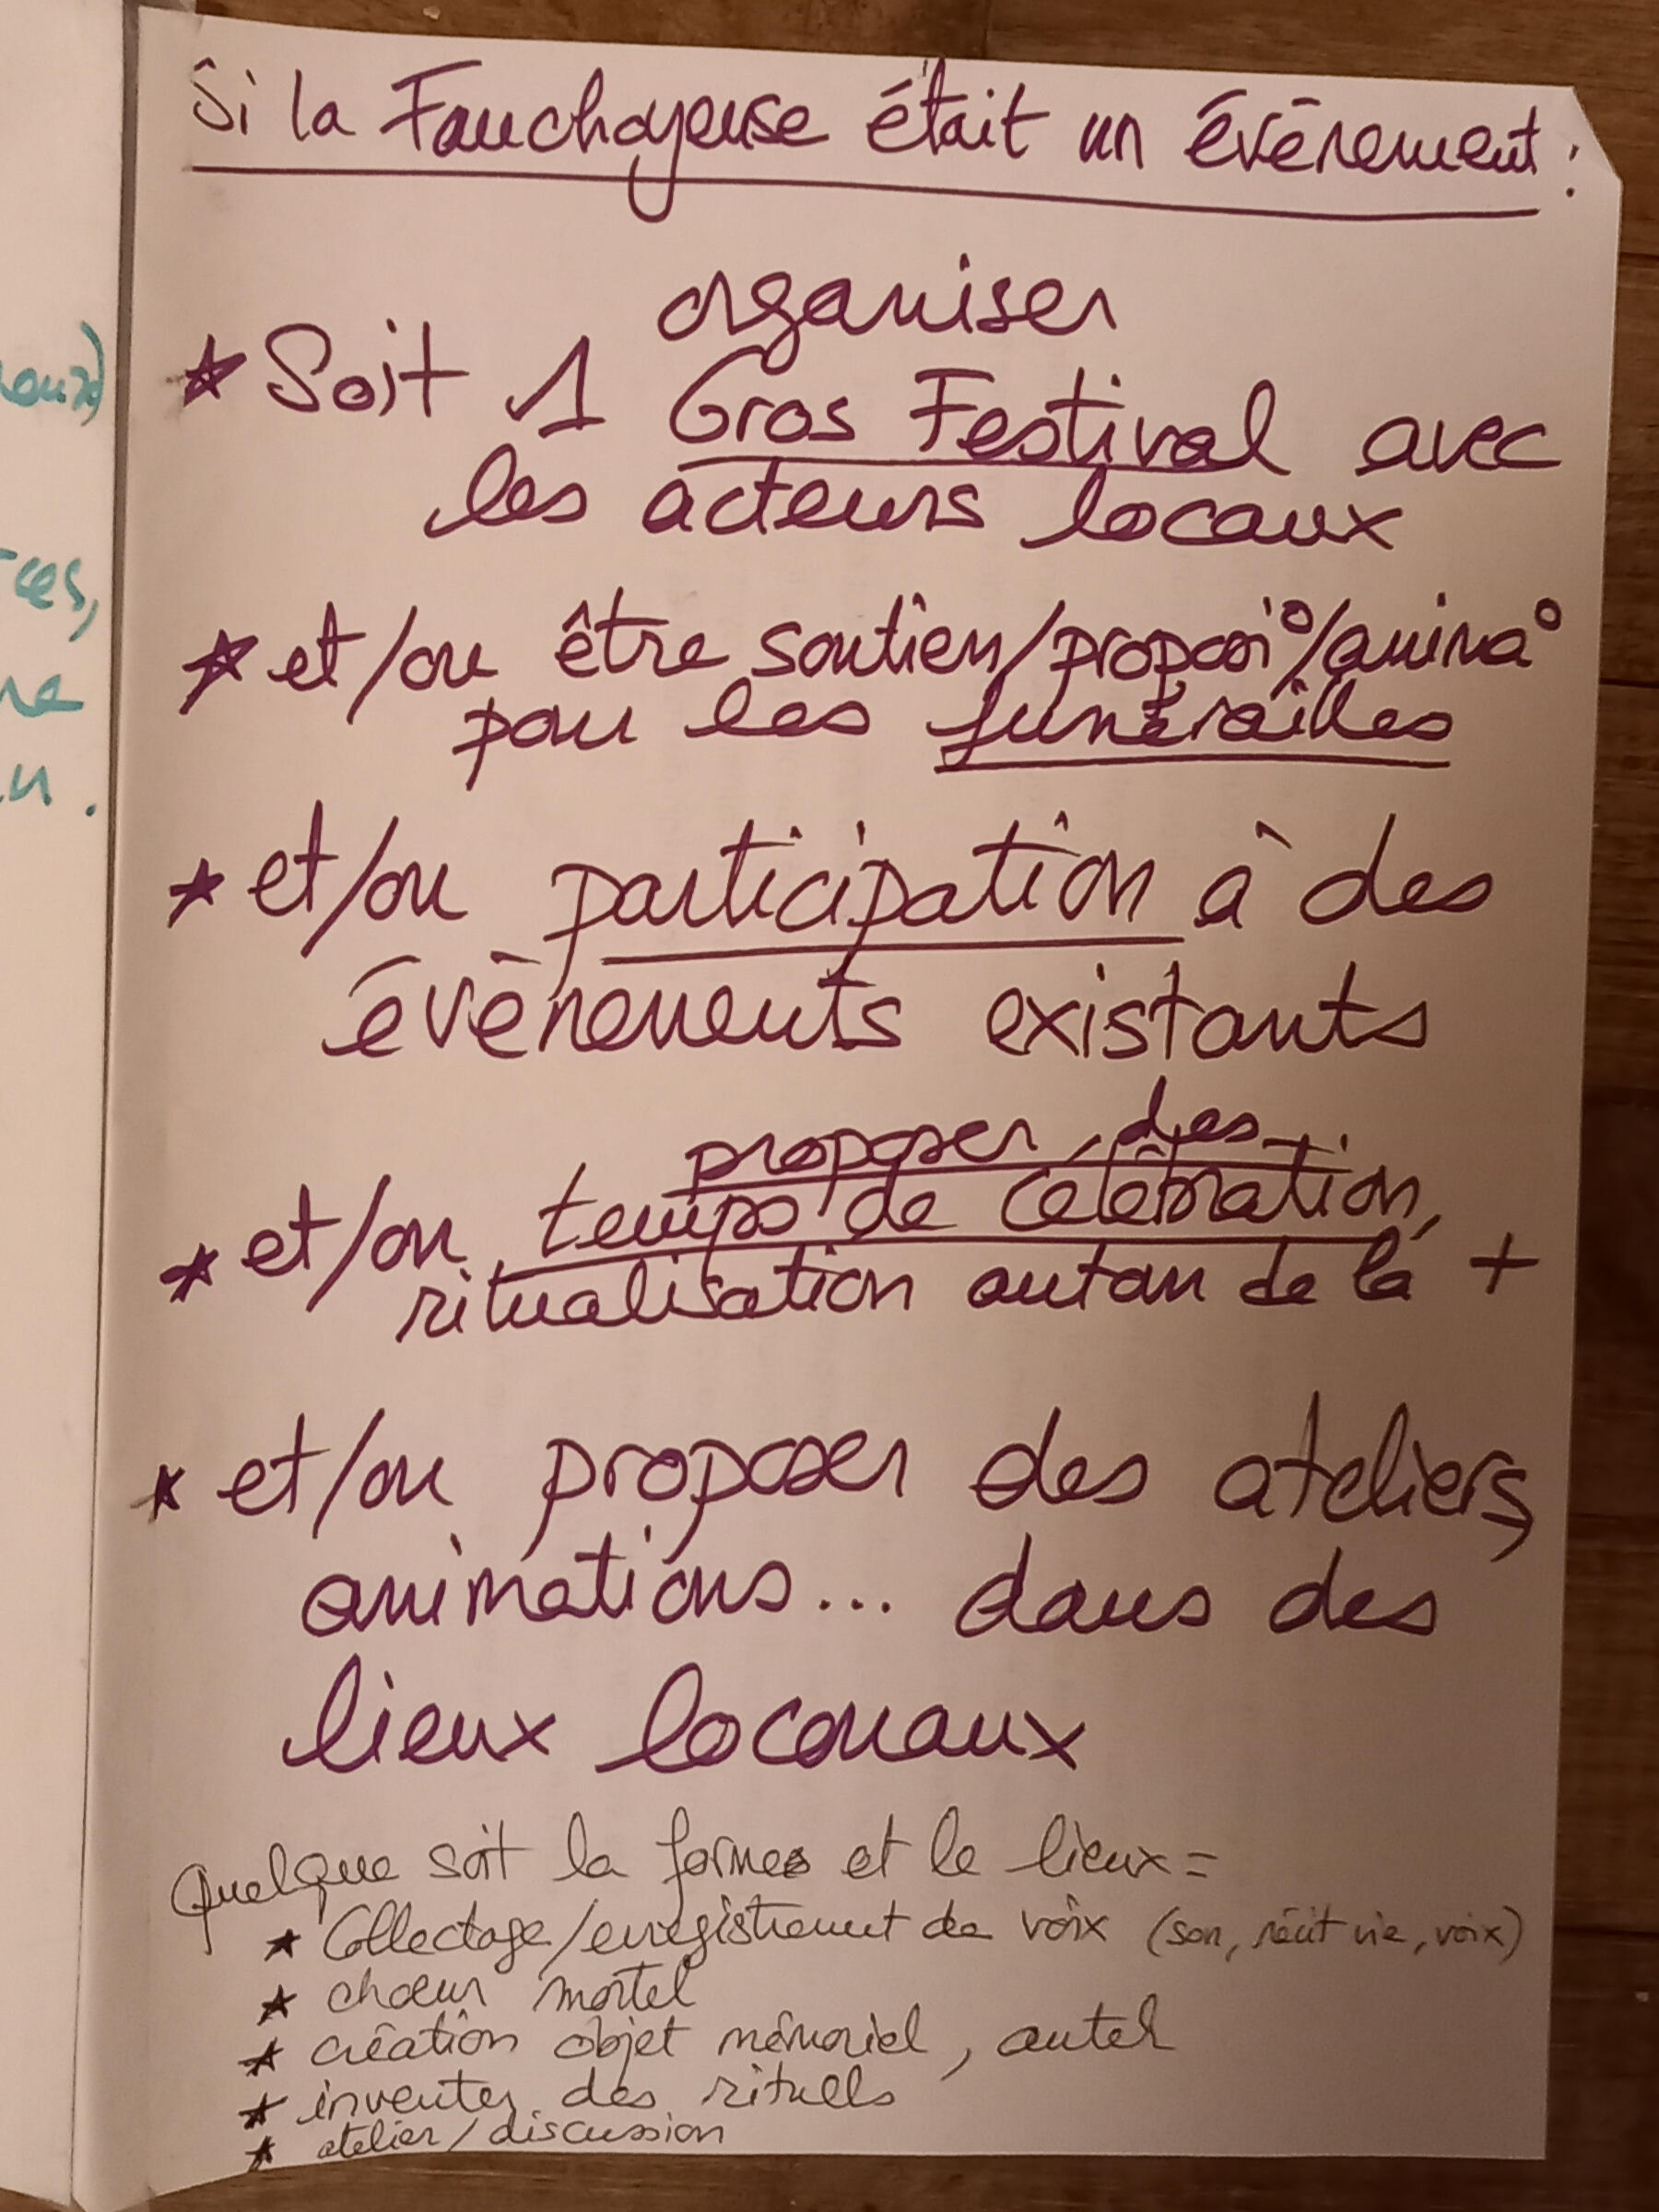 oux)
ces,
ne
n.
Si la Fauchoyeuse était un évènement :
organiser
★ Soit 1 Gros Festival avec
les acteurs locaux
★ et/ou être soutien/proposi°/anima°
pour les funérailles
★ et/ou participation à des
évènements existants
proposer des
★ et/ou temps de célébration,
ritualisation autour de la +
★ et/ou proposer des ateliers,
animations... dans des
lieux
Quelque soit la formes et le lieux =
★ Collectage/enregistrement de voix (son, récit vie, voix)
★ chœur mortel
★ création objet mémoriel, autel
★ inventer des rituels
★ atelier/discussion